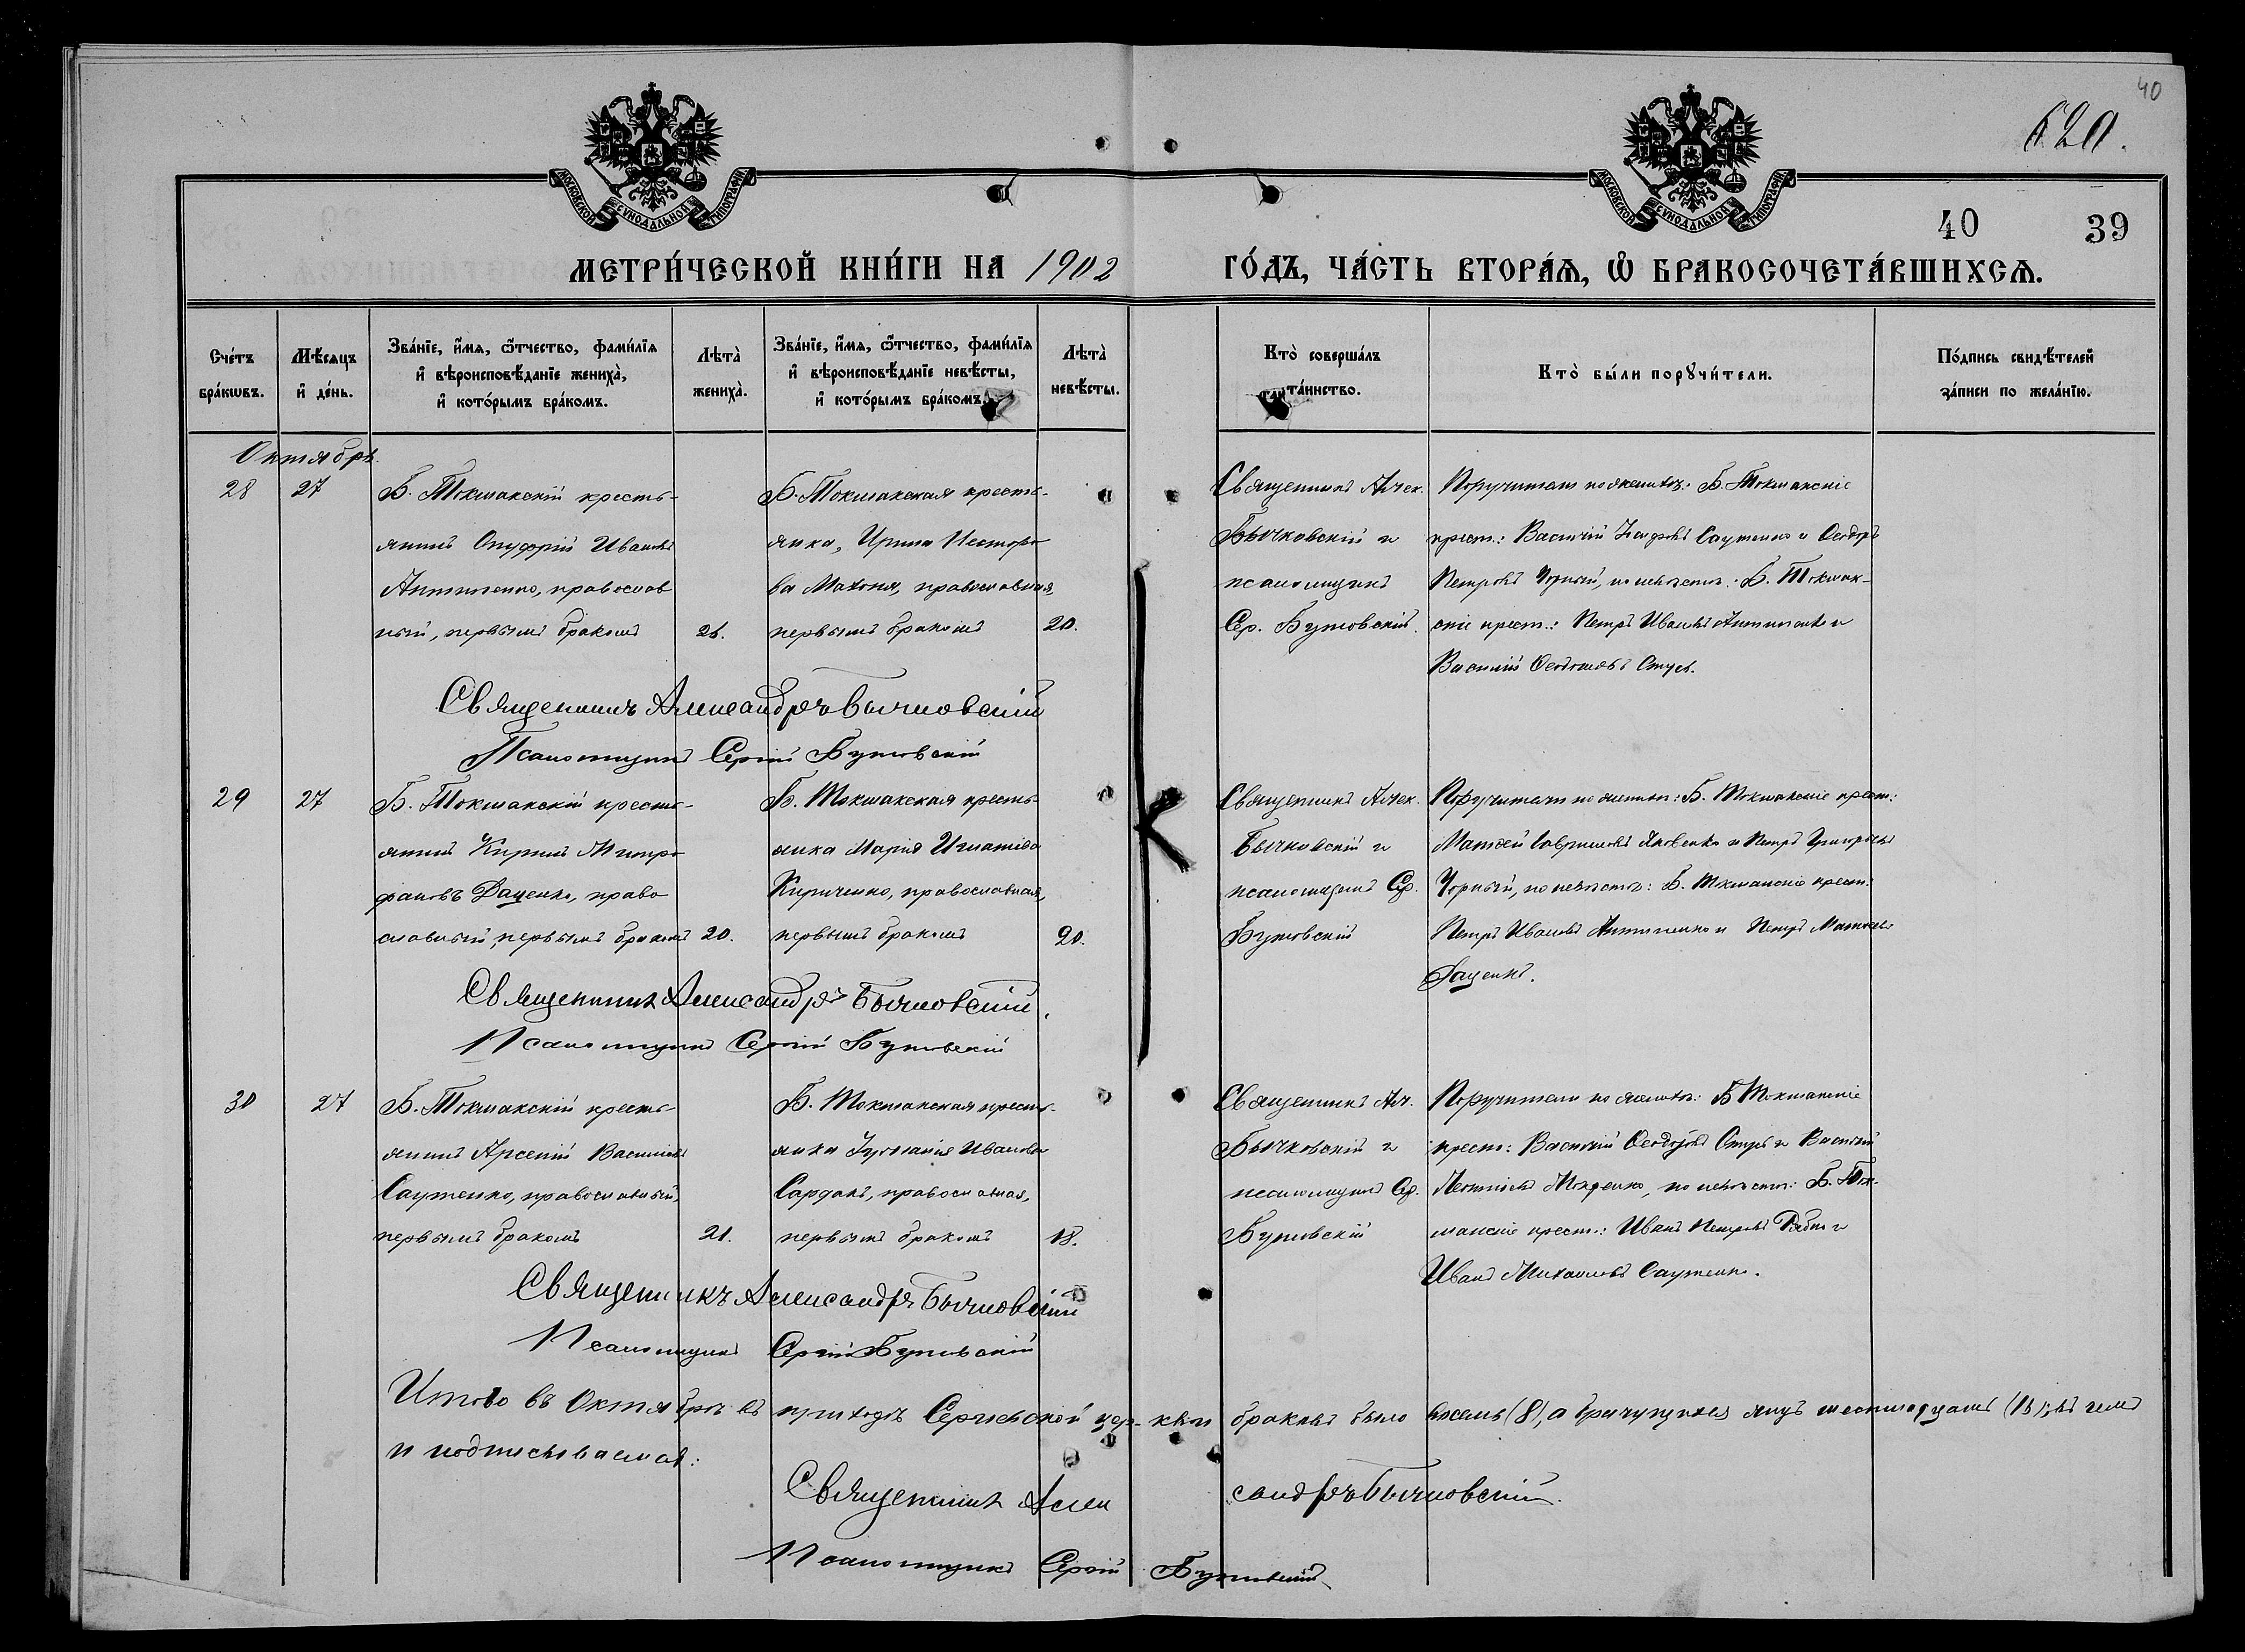 40
620.
МОСКОВСКОЙ СѴНОДАЛЬНОЙ ТИПОГРАФІИ
МОСКОВСКОЙ СѴНОДАЛЬНОЙ ТИПОГРАФІИ
40 39
МЕТРИ́ЧЕСКОЙ КНИ́ГИ НА 1902 ГО́ДЪ, ЧА́СТЬ ВТОРА́Ѧ, Ѽ БРАКОСОЧЕТА́ВШИХСѦ.
Сче́тъ
бра́кѡвъ.
Мѣ́сѧцъ
и҆ де́нь.
Зва́нїе, и҆́мѧ, ѻ҆́тчество, фами́лїѧ
и҆ вѣроисповѣ́данїе жениха̀,
и҆ кото́рымъ бра́комъ.
Лѣта̀
жениха̀.
Зва́нїе, и҆́мѧ, ѻ҆́тчество, фами́лїѧ
и҆ вѣроисповѣ́данїе невѣ́сты,
и҆ кото́рымъ бра́комъ.
Лѣта̀
невѣ́сты.
Кто̀ соверша́лъ
та́инство.
Кто̀ бы́ли порꙋчи́тели.
По́дпись свидѣ́телей
за́писи по жела́нїю.
Октябрь.
28
27
Б. Токмакскій кресть-
янинъ Онуфрій Ивановъ
Антипенко, православ
ный, первымъ бракомъ
Б. Токмакская кресть-
янка, Ирина Несторо
ва Махоня, православная,
первымъ бракомъ
20.
Священникъ Алек.
Бычковскій и
псаломщикъ
Сер. Бутовскій.
Поручители по женихѣ: Б. Токмакскіе
крест.: Василій Саутенко и Ѳеодоръ
Петровъ Чорный, по невѣстѣ: Б. Токмак-
скіе крест.: Петръ Ивановъ Антипенко и
Василій
Священникъ Александръ Бычковскій
Псаломщикъ Сергій Бутовскій
29
27
Б. Токмакскій кресть-
янинъ Кирилъ Митро
фановъ Даценко, право
славный, первымъ бракомъ
20.
Б. Токмакская кресть-
янка Марія Игнатіева
Кириченко, православная,
первымъ бракомъ
20.
Священникъ Алек.
Бычковскій и
псаломщикъ Ср.
Бутовскій
Поручители по женихѣ: Б. Токмакскіе крест.:
Матѳей Яковенко и Петръ Григорьевъ
Чорный, по невѣстѣ: Б. Токмакскіе крест.:
Петръ Ивановъ Антипенко и Петръ
Даценко.
Священникъ Александръ Бычковскій.
Псаломщикъ Сергій Бутовскій
30
27
Б. Токмакскій кресть-
янинъ Арсеній Васильевъ
Саутенко, православный,
первымъ бракомъ
21.
Б. Токмакская кресть-
янка Иванова
Сардакъ, православная,
первымъ бракомъ
18.
Священникъ Ал.
Бычковскій и
псаломщикъ Ср.
Бутовскій
Поручители по женихѣ: Б. Токмакскіе
крест.: Василій Ѳеодоровъ и Василій
по невѣстѣ: Б. Ток-
макскіе крест.: Иванъ Петровъ и
Иванъ Михайловъ Саутенко.
Священникъ Александръ Бычковскій
Псаломщикъ Сергій Бутовскій
Итого въ Октябрѣ въ приходѣ Сергіевской цер-кви браковъ было восемь (8), а брачущихся лицъ шестнадцать (16); въ чемъ
и подписываемся:
Священникъ Александръ Бычковскій.
Псаломщикъ Сергій Бутовскій